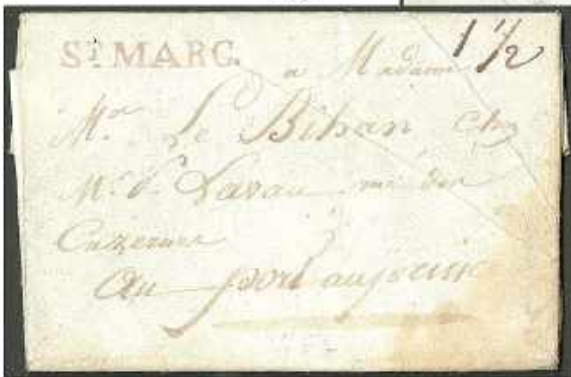 St MARC.
1 1/2
a Madame
Mde Le Bihan, chez
Mr. d. Lavau rue des
Cazernes
au port au prince